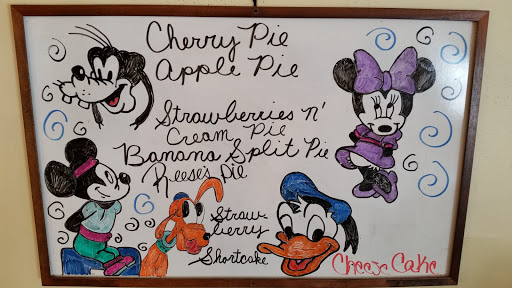 Cherry Pie
Apple Pie
Strawberries n'
Cream Pie
Banana Split Pie
Reese's pie
Straw-
berry
Shortcake
Cheese Cake